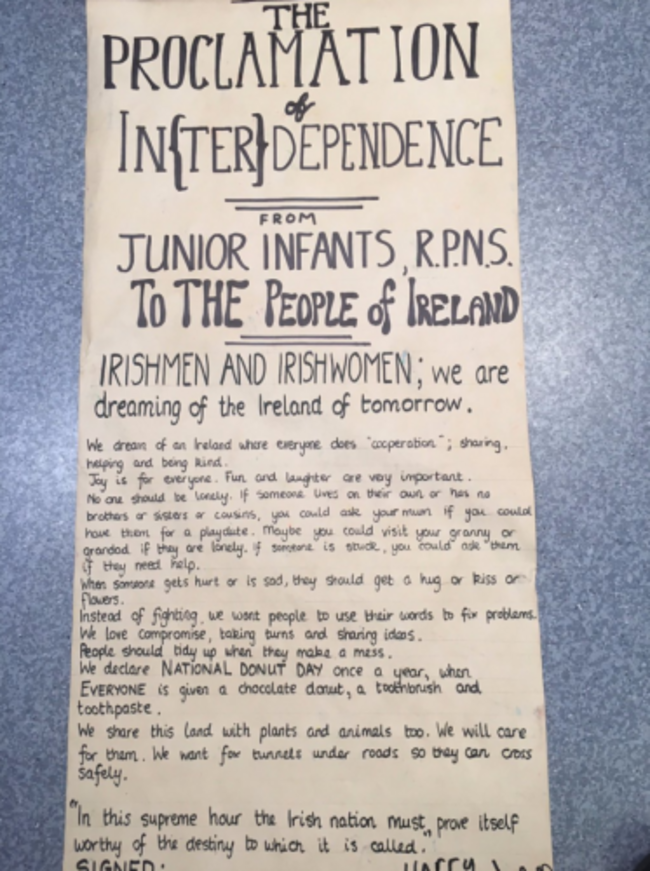 THE
PROCLAMATION
of
IN{TER}DEPENDENCE
FROM
JUNIOR INFANTS, R.P.N.S.
TO THE PEOPLE of IRELAND
IRISHMEN AND IRISHWOMEN; we are
dreaming of the Ireland of tomorrow.
We dream of an Ireland where everyone does "cooperation"; sharing,
helping and being kind.
Joy is for everyone. Fun and laughter are very important.
No one should be lonely. If someone lives on their own or has no
brothers or sisters or cousins, you could ask your mum if you could
have them for a playdate. Maybe you could visit your granny or
grandad if they are lonely. If someone is stuck, you could ask them
if they need help.
When someone gets hurt or is sad, they should get a hug or kiss or
flowers.
Instead of fighting, we want people to use their words to fix problems.
We love compromise, taking turns and sharing ideas.
People should tidy up when they make a mess.
We declare NATIONAL DONUT DAY once a year, when
EVERYONE is given a chocolate donut, a toothbrush and
toothpaste.
We share this land with plants and animals too. We will care
for them. We want for tunnels under roads so they can cross
safely.
"In this supreme hour the Irish nation must,, prove itself
worthy of the destiny to which it is called."
SIGNED: